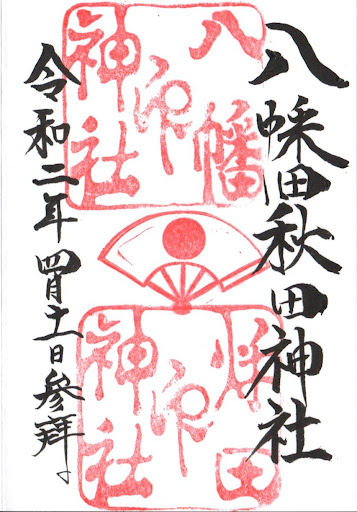 八幡秋田神社
令和二年四月十一日参拝
八幡
印
神社
秋田
印
神社